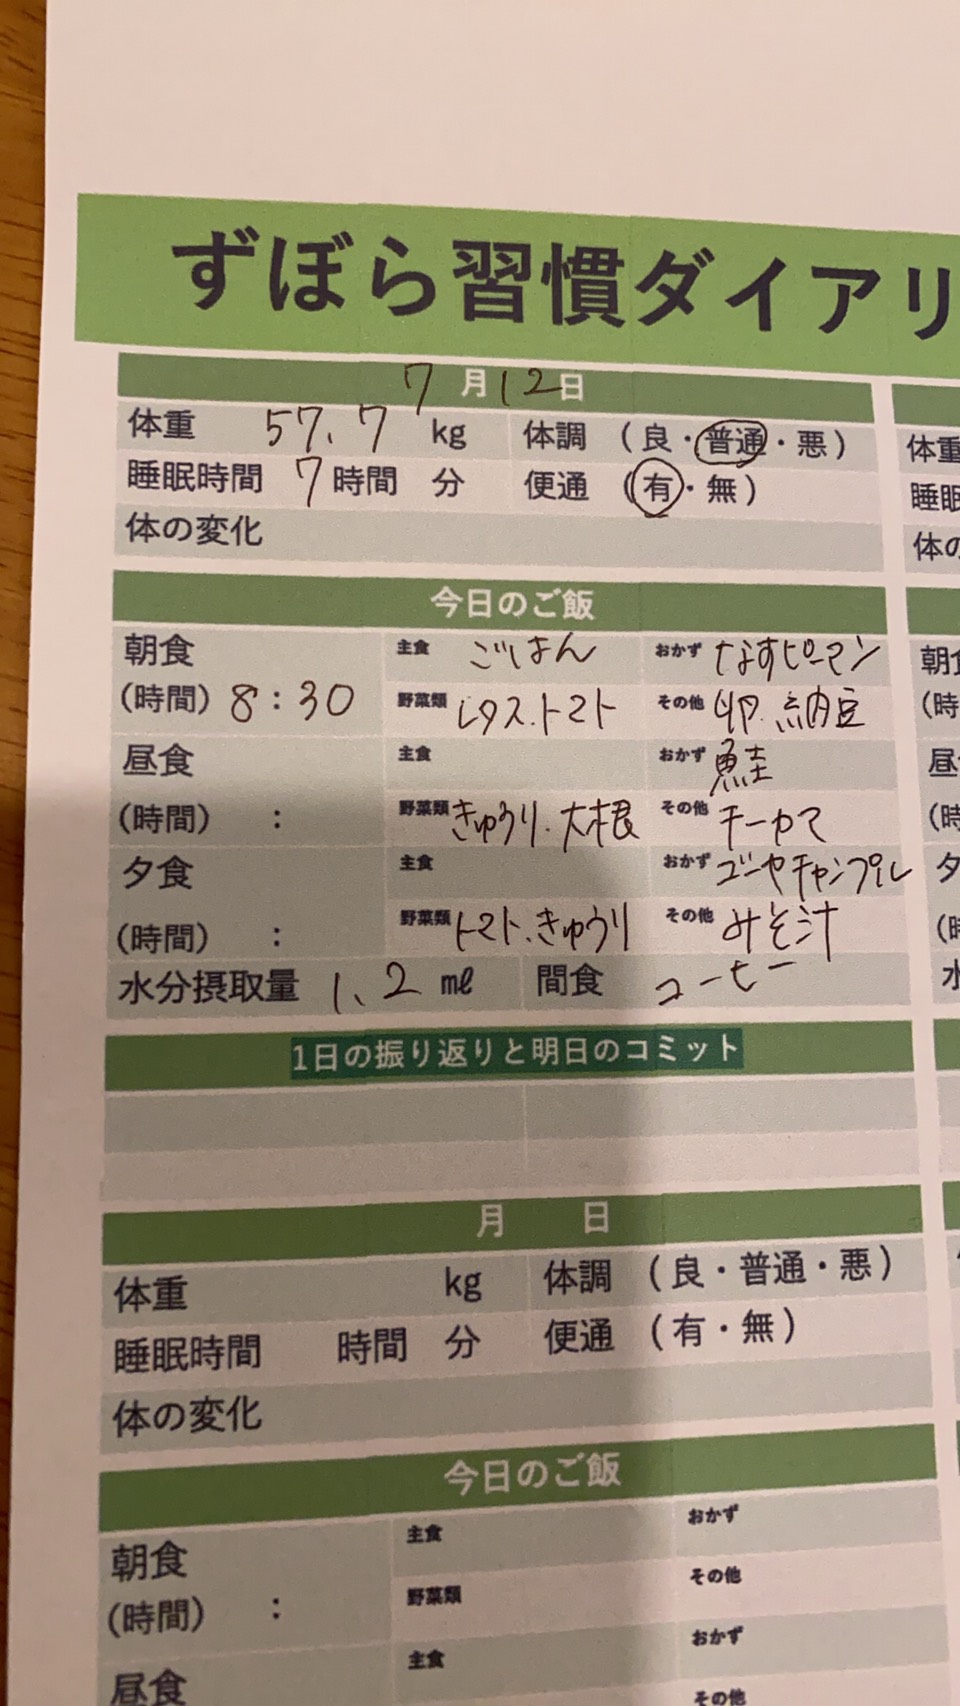 ずぼら習慣ダイアリ
7月12日
体重 57.7 kg 体調 (良・普通・悪)
睡眠時間 7時間 分 便通 (有・無)
体の変化
今日のご飯
朝食 主食 ごはん おかず なすピーマン
(時間) 8:30 野菜類 レタス.トマト その他 卵.納豆
昼食 主食 おかず 鮭
(時間) : 野菜類 きゅうり.大根 その他 チーカマ
夕食 主食 おかず ゴーヤチャンプル
(時間) : 野菜類 トマト.きゅうり その他 みそ汁
水分摂取量 1.2 ㎖ 間食 コーヒー
1日の振り返りと明日のコミット
月 日
体重 kg 体調 (良・普通・悪)
睡眠時間 時間 分 便通 (有・無)
体の変化
今日のご飯
朝食 主食 おかず
(時間) : 野菜類 その他
昼食 主食 おかず
その他
体重
睡眠
体の
朝食
(時
昼
(時
夕
(時
水